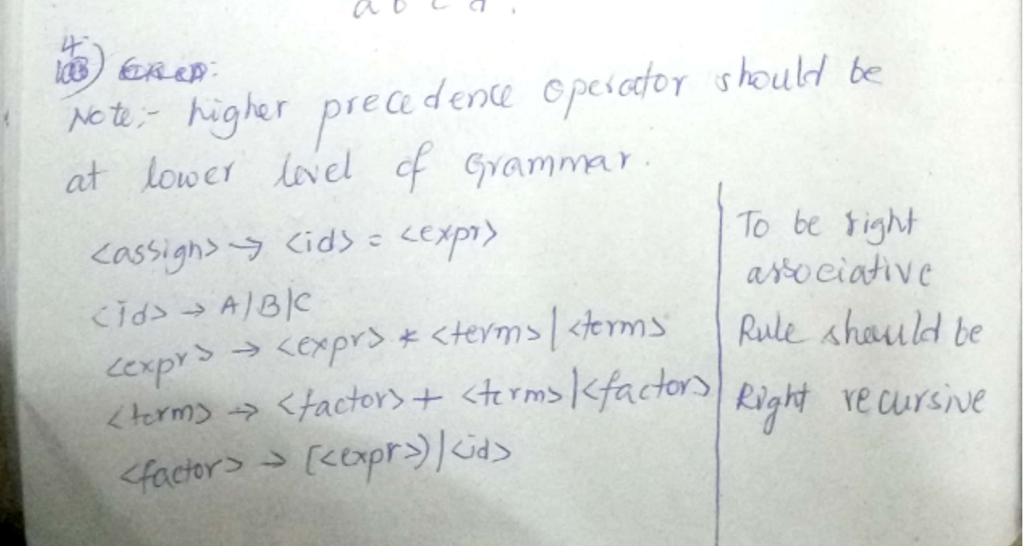 a b c d.
4
Note:- higher precedence operator should be
at lower level of Grammar.
<assign> → <id> = <expr>
<id> → A/B/C
<expr> → <expr> * <term> | <term>
<term> → <factor> + <term> | <factor>
<factor> → (<expr>) | <id>
To be right
associative
Rule should be
Right recursive